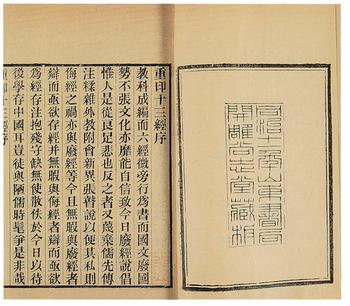 同治十一年山東書局
開雕尚志堂藏板
重印十三經序
教科成編而六經微旁行為書而國文廢國
勢不張文化亦靡能自信致今日廢經說倡
惟人是從良足悲也反之者又蔑棄儒先傳
注糅雜外教附會新異張瞽說以便其私則
侮經之禍亦與廢經等今且無暇與廢經者
辯而亟欲存經并無暇與侮經者辯而亟欲
為經存注抱殘守缺無使散佚於今日以待
後學存中國耳豈徒與陋儒時髦爭是非哉
重印十三經序